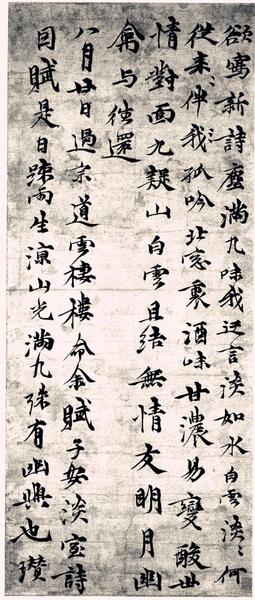 欲寫新詩塵滿几味我迂言淡如水白雲淡淡何
從來伴我孤吟北窓裏酒味甘濃易變酸世
情對面九疑山白雲且結無情友明月幽
禽与往還
八月廿日過宗道雲棲樓命余賦子安淡室詩
因賦是日踈雨生涼山光滿几殊有幽興也瓚